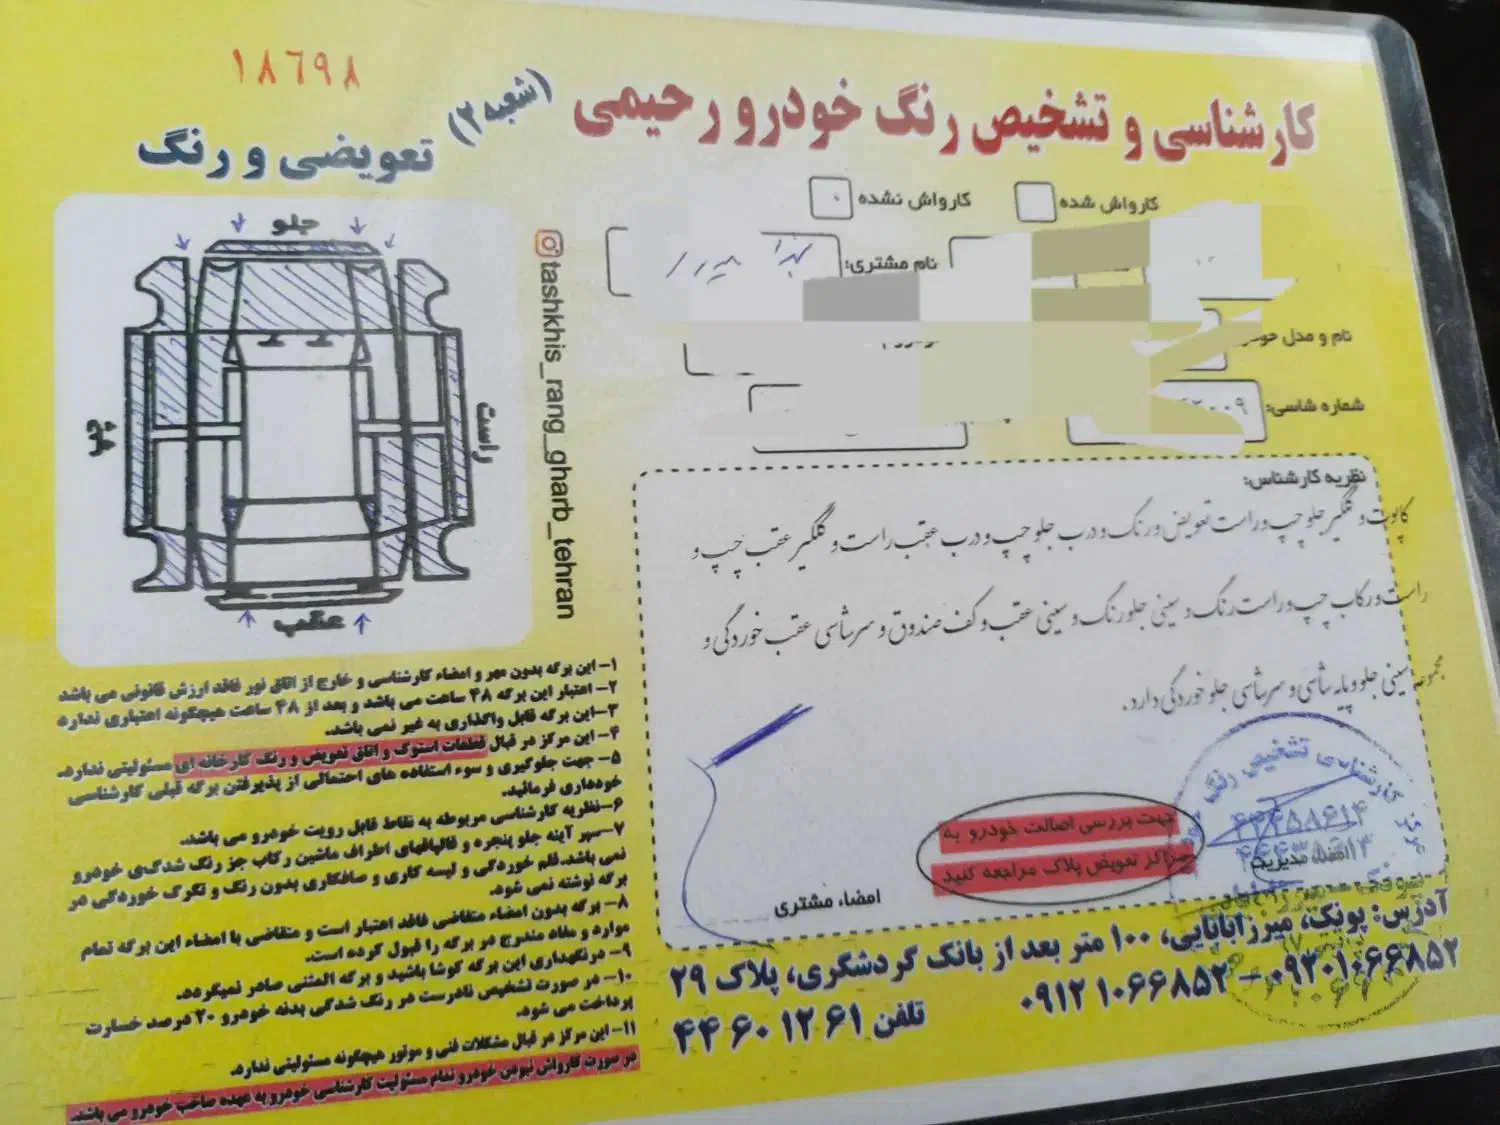 ۱۸۶۹۸
کارشناسی و تشخیص رنگ خودرو رحیمی (شعبه ۲)
تعویضی و رنگ
کارواش شده
کارواش نشده
نام مشتری:
نام و مدل خودرو
شماره شاسی:
جلو
چپ
راست
عقب
tashkhis_rang_gharb_tehran
نظریه کارشناس:
کاپوت و گلگیر جلو چپ و راست تعویض و رنگ و درب جلو چپ و درب عقب راست و گلگیر عقب چپ و
راست و رکاب چپ و راست رنگ و سینی جلو رنگ و سینی عقب و کف صندوق و سرشاسی عقب خوردگی و
مجموعه سینی جلو و پایه شاسی و سرشاسی جلو خوردگی دارد.
جهت بررسی اصالت خودرو به
مراکز تعویض پلاک مراجعه کنید
امضاء مشتری
امضاء مدیریت
کارشناسی تشخیص رنگ
۴۴۴۵۸۸۶۱۴
۱- این برگه بدون مهر و امضاء کارشناسی و خارج از اتاق نور فاقد ارزش قانونی می باشد
۲- اعتبار این برگه ۴۸ ساعت می باشد و بعد از ۴۸ ساعت هیچگونه اعتباری ندارد
۳-این برگه قابل واگذاری به غیر نمی باشد.
۴- این مرکز در قبال قطعات استوک و اتاق تعویض و رنگ کارخانه ای مسئولیتی ندارد.
۵- جهت جلوگیری و سوء استفاده های احتمالی از پذیرفتن برگه قبلی کارشناسی
خودداری فرمائید.
۶-نظریه کارشناسی مربوطه به نقاط قابل رویت خودرو می باشد.
۷-سپر آینه جلو پنجره و قالپاقهای اطراف ماشین رکاب جز رنگ شدگی خودرو
نمی باشد.قلم خوردگی و لیسه کاری و صافکاری بدون رنگ و تگرگ خوردگی در
برگه نوشته نمی شود.
۸- برگه بدون امضاء متقاضی فاقد اعتبار است و متقاضی با امضاء این برگه تمام
موارد و مفاد مندرج در برگه را قبول کرده است.
۹- درنگهداری این برگه کوشا باشید و برگه المثنی صادر نمیگردد.
۱۰- در صورت تشخیص نادرست در رنگ شدگی بدنه خودرو ۲۰ درصد خسارت
پرداخت می شود.
۱۱- این مرکز در قبال مشکلات فنی و موتور هیچگونه مسئولیتی ندارد.
در صورت کارواش نبودن خودرو تمام مسئولیت کارشناسی خودرو به عهده صاحب خودرو می باشد.
آدرس: پونک، میرزابابایی، ۱۰۰ متر بعد از بانک گردشگری، پلاک ۲۹
۰۹۱۲۱۰۶۶۸۵۲ - ۰۹۳۰۱۰۶۶۸۵۲
تلفن ۴۴۶۰۱۲۶۱